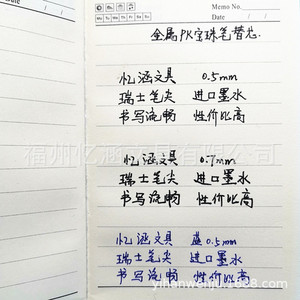 Memo No.
Date / /
金属PK宝珠笔替芯.
忆涵文具 0.5mm
瑞士笔尖 进口墨水
书写流畅 性价比高
忆涵文具 0.7mm
瑞士笔尖 进口墨水
书写流畅 性价比高
忆涵文具 蓝0.5mm
瑞士笔尖 进口墨水
书写流畅 性价比高